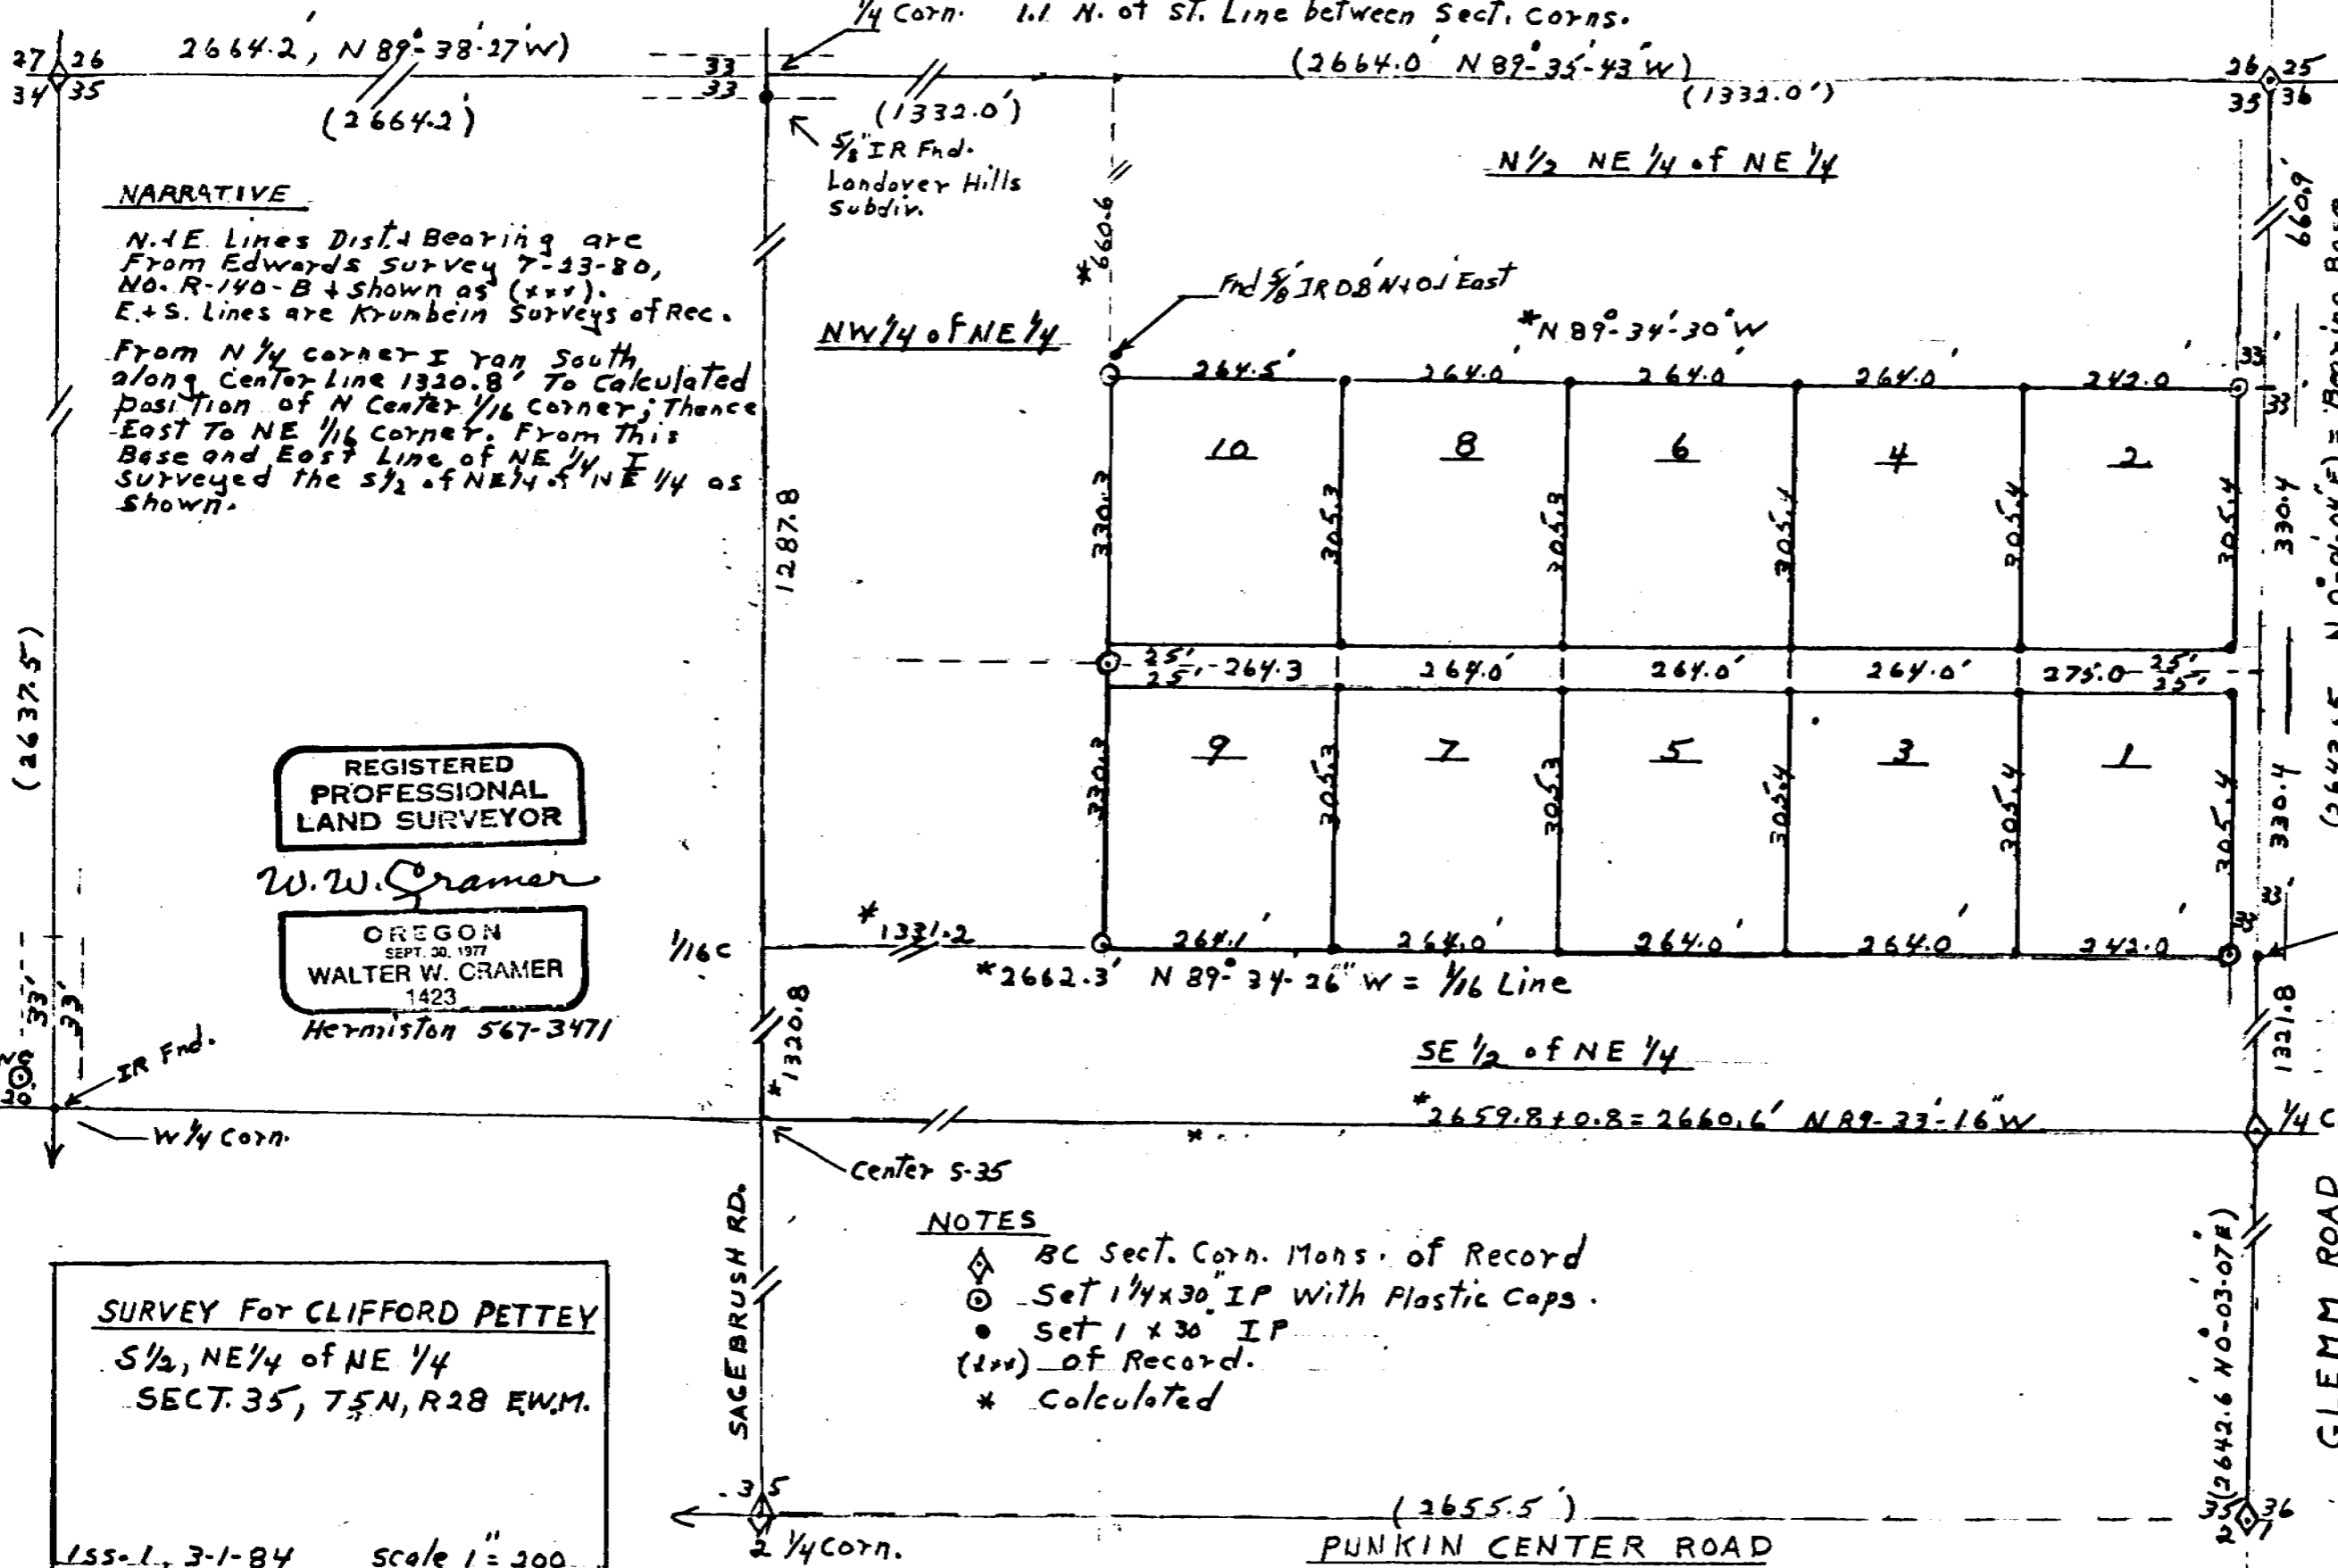 1/4 Corn. 1.1 N. of ST. Line between Sect. Corns.
27 26
34 35
2664.2', N 89°-38'-27"W)
(2664.2')
33
33
(2664.0' N 89°-35'-43"W)
(1332.0')
(1332.0')
26 25
35 36
5/8" IR Fnd.
Landover Hills
Subdiv.
N 1/2 NE 1/4 of NE 1/4
660.9'
NARRATIVE
N.+E. Lines Dist.+ Bearing are
From Edwards Survey 7-23-80,
NO. R-140-B + shown as (xxx).
E.+ S. Lines are Krumbein Surveys of Rec.
From N 1/4 corner I ran South
along Center Line 1320.8' To Calculated
position of N Center 1/16 Corner; Thence
East To NE 1/16 Corner. From this
Base and East Line of NE 1/4 I
surveyed the S 1/2 of NE 1/4 of NE 1/4 as
shown.
*660.6
Fnd 5/8 IR 0.8' N + 0.1 East
NW 1/4 of NE 1/4
*N 89°-34'-30"W
264.5' 264.0' 264.0' 264.0' 242.0'
33'
33'
10 8 6 4 2
330.3 305.3 305.3 305.4 305.4 305.4 330.4
1287.8
25' 264.3 264.0' 264.0' 264.0' 275.0 25'
25' 25'
9 7 5 3 1
330.3 305.3 305.3 305.4 305.4 305.4 330.4
(2637.5)
REGISTERED
PROFESSIONAL
LAND SURVEYOR
W.W. Cramer
OREGON
SEPT. 30, 1977
WALTER W. CRAMER
1423
Hermiston 567-3471
1/16 C
*1331.2
264.1' 264.0' 264.0' 264.0' 242.0'
33'
*2662.3' N 89°-34-26" W = 1/16 Line
33'
33'
*1320.8
1321.8
SE 1/2 of NE 1/4
IR Fnd.
W 1/4 Corn.
*2659.8+0.8=2660.6' N 89-33'-16"W
1/4 C
*
Center S-35
SAGEBRUSH RD.
GLEMM ROAD
NOTES
BC Sect. Corn. Mons. of Record
Set 1 1/4 x 30" IP With Plastic Caps.
Set 1 x 30" IP
(xxx) of Record.
* Calculated
(2642.6 N0°-03'-07"E)
SURVEY For CLIFFORD PETTEY
S 1/2, NE 1/4 of NE 1/4
SECT. 35, T5N, R28 E.W.M.
Iss-1, 3-1-84 scale 1"=200
35
2 1/4 Corn.
(2655.5')
PUNKIN CENTER ROAD
35 36
2 1